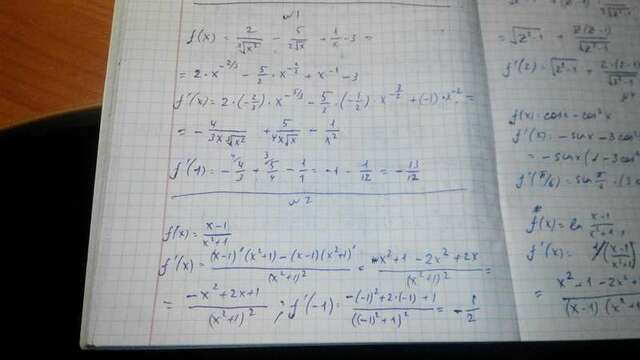 №1
f(x) = 2/∛x² − 5/2√x + 1/x − 3 =
= 2·x^(-2/3) − 5/2·x^(-2/3) + x^(-1) − 3
f'(x) = 2·(−2/3)·x^(-5/3) − 5/2·(−1/2)·x^(-3/2) + (−1)·x^(-2) =
= −4/3x∛x² + 5/4x√x − 1/x²
f'(1) = −4/3 + 5/4 − 1/1 = −1 − 1/12 = −13/12
№2
f(x) = x−1/x²+1
f'(x) = (x−1)'(x²+1) − (x−1)(x²+1)'/(x²+1)² = x²+1−2x²+2x/(x²+1)² =
= −x²+2x+1/(x²+1)² ; f'(−1) = −(−1)²+2·(−1)+1/((−1)²+1)² = −1/2
= √z²−1 + z(z−1)/√z²−1
f'(2) =
f(x) = cosx − cos³x
f'(x) = −sinx − 3cos
= −sinx(1−3cos
f'(π/6) = sin π/6 ·(3
f(x) = ln x−1/x²+1
f'(x) = 1/(x−1/x²+1)
= x²+1−2x²+/(x−1)(x²+